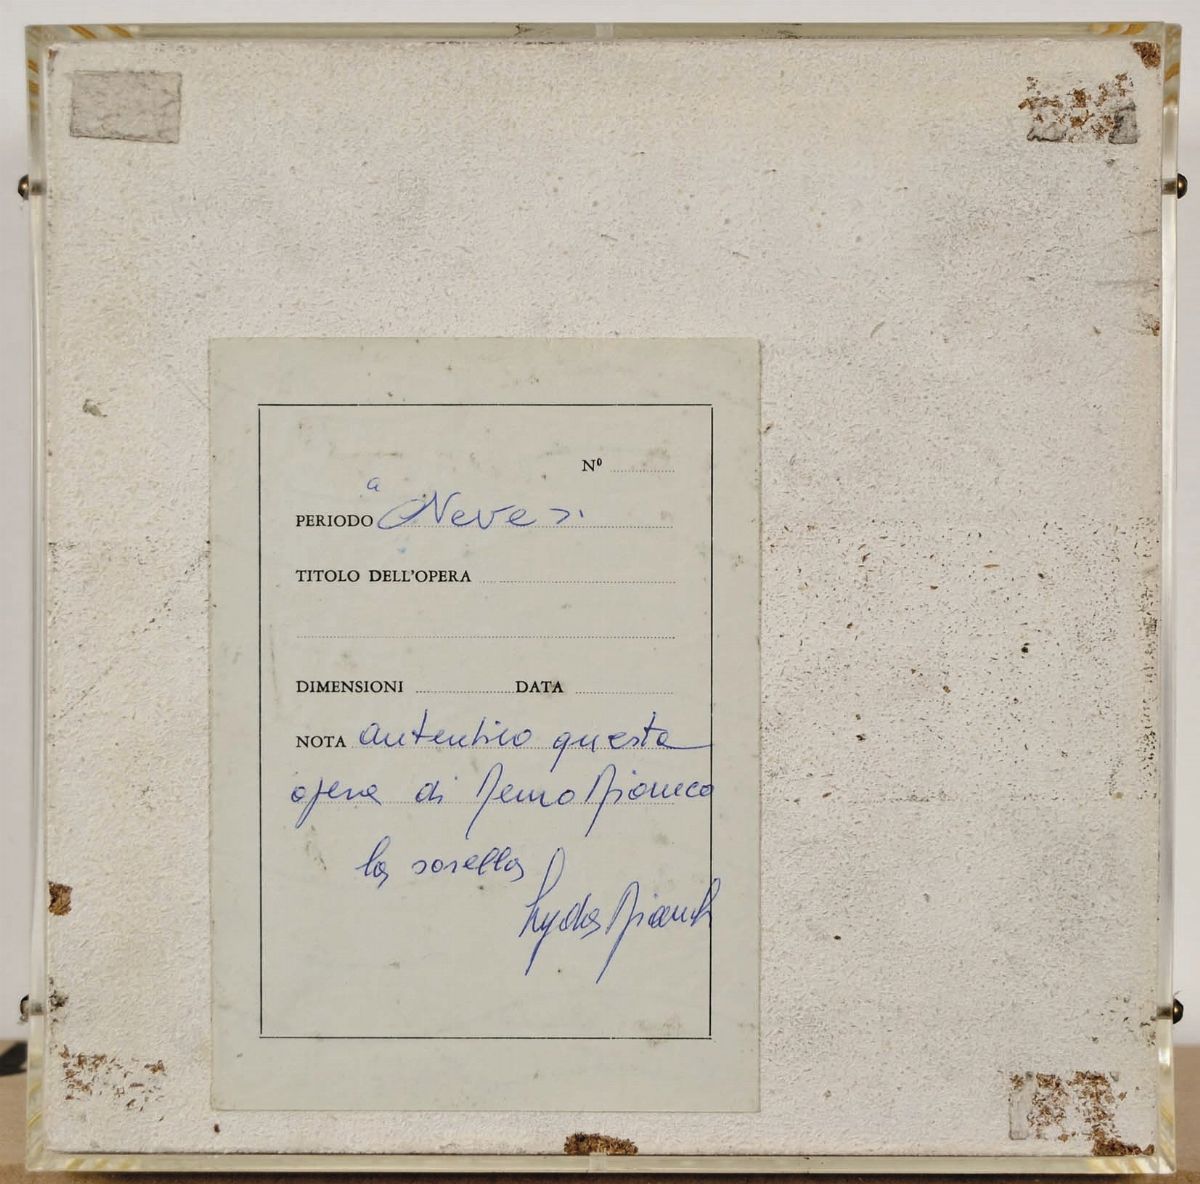 Nº
a
PERIODO Neves.
TITOLO DELL'OPERA
DIMENSIONI DATA
NOTA autentico questa
opera di Remo Bianco
la sorella
Lyda Bianchi